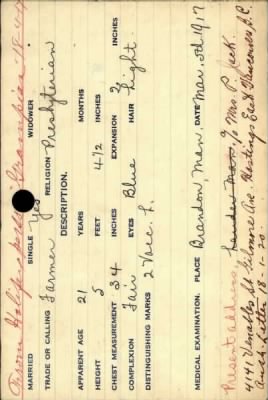 From Halifax per SS Grampian 18-4-17
MARRIED SINGLE Yes WIDOWER
TRADE OR CALLING Farmer RELIGION Presbyterian
DESCRIPTION.
APPARENT AGE 21 YEARS MONTHS
HEIGHT 5 FEET 4 1/2 INCHES
CHEST MEASUREMENT 34 INCHES EXPANSION 2 INCHES
COMPLEXION Fair EYES Blue HAIR Light.
DISTINGUISHING MARKS 2 Vacc. L.
MEDICAL EXAMINATION. PLACE Brandon, Man. DATE Mar. 5th 1917
Present address. Lauder Man. c/o Mrs. P. Jack.
4141 Venables St Gilmore Ave. Hastings East Vancouver B.C.
Auth. Letter 18-1-20.